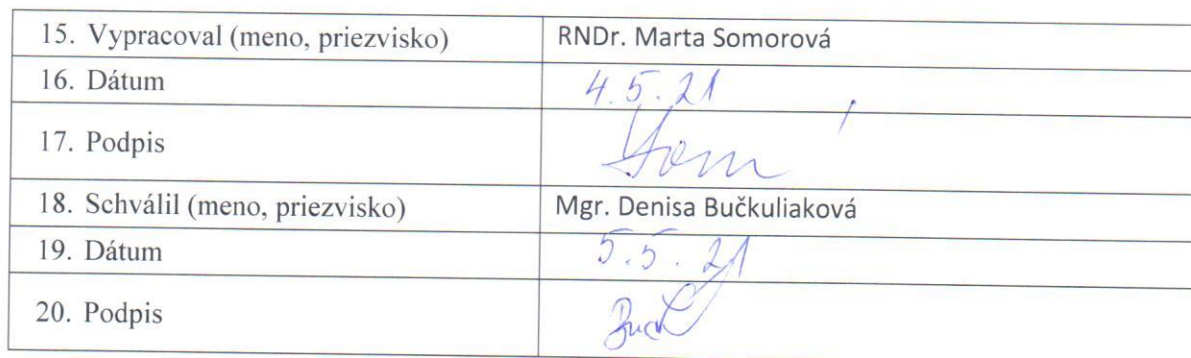 15. Vypracoval (meno, priezvisko) RNDr. Marta Somorová
16. Dátum 4.5.21
17. Podpis
18. Schválil (meno, priezvisko) Mgr. Denisa Bučkuliaková
19. Dátum 5.5.21
20. Podpis